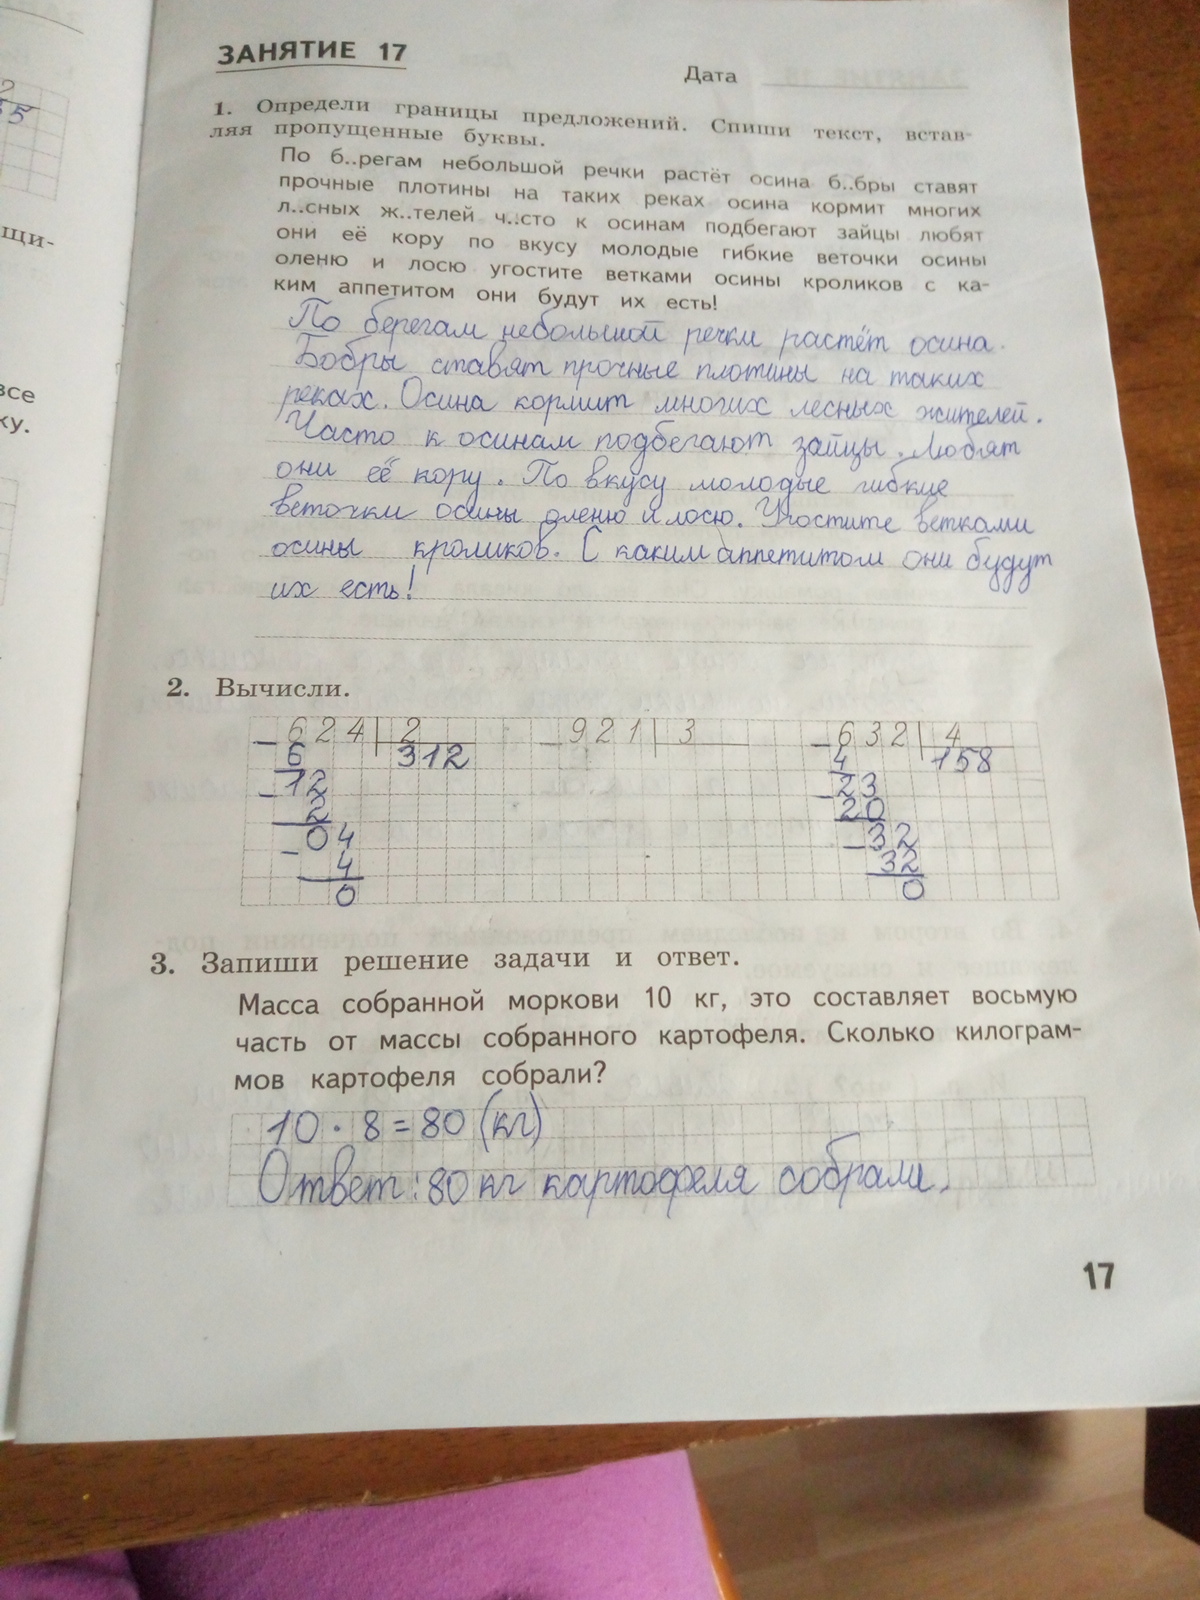 2
35
щи-
все
ку.
ЗАНЯТИЕ 17
Дата
1. Определи границы предложений. Спиши текст, встав-
ляя пропущенные буквы.
По б..регам небольшой речки растёт осина б..бры ставят
прочные плотины на таких реках осина кормит многих
л..сных ж..телей ч..сто к осинам подбегают зайцы любят
они её кору по вкусу молодые гибкие веточки осины
оленю и лосю угостите ветками осины кроликов с ка-
ким аппетитом они будут их есть!
По берегам небольшой речки растёт осина.
Бобры ставят прочные плотины на таких
реках. Осина кормит многих лесных жителей.
Часто к осинам подбегают зайцы. Любят
они её кору. По вкусу молодые гибкие
веточки осины оленю и лосю. Угостите ветками
осины кроликов. С каким аппетитом они будут
их есть!
2. Вычисли.
624 2 921 3 632 4
6 312 4 158
12 23
2 20
04 32
4 32
0 0
3. Запиши решение задачи и ответ.
Масса собранной моркови 10 кг, это составляет восьмую
часть от массы собранного картофеля. Сколько килограм-
мов картофеля собрали?
10 · 8 = 80 (кг)
Ответ: 80 кг картофеля собрали.
17